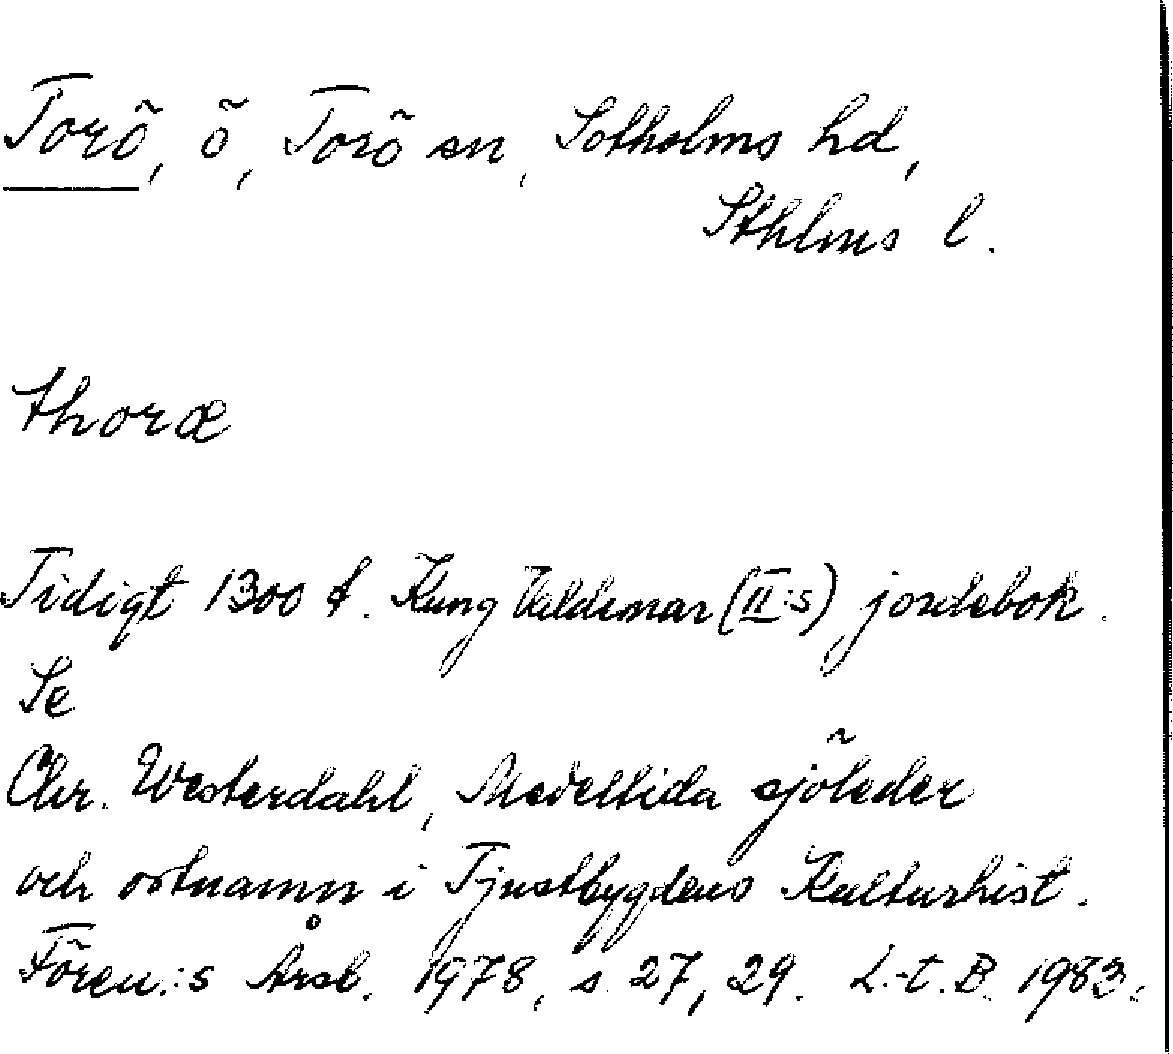 Torö, ö, Torö sn, Sotholms hd,
Sthlms l.
thoræ
Tidigt 1300 t. Kung Valdemar (II:s) jordebok.
Se
Chr. Westerdahl, Medeltida sjöleder
och ortnamn i Tjustbygdens Kulturhist.
Fören.:s Årsb. 1978, s. 27, 29. L.-t. B. 1983.